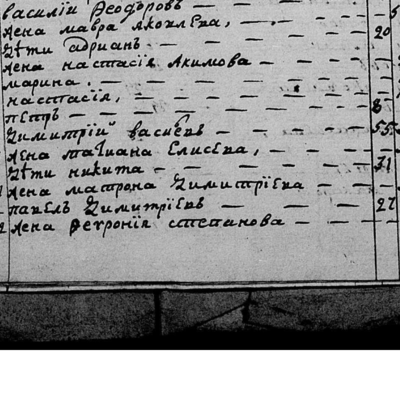 василій Ѳеодоровъ — — — 5
жена мавра яковлева, — — —
дѣти адрианъ — — — — 20
жена настасія Акимова — — —
марина — — — — —
настасія, — — — — —
петръ — — — — — 8
Димитрій васиевъ — — — — 55
жена татиана Елисева, — — —
дѣти никита — — — — — 31
жена матрона Димитріева — — —
павелъ Димитріевъ — — — — 27
жена Ѳевронія степанова — — —